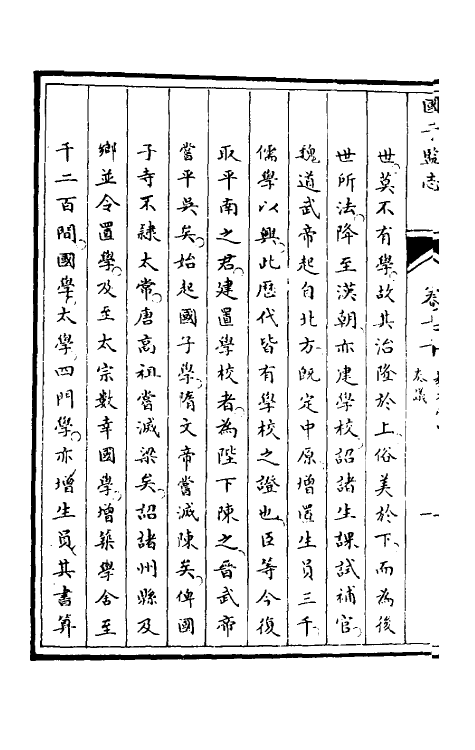 國子監志
卷七十
奏議
世莫不有學故其治隆於上俗美於下而為後
世所法降至漢朝亦建學校詔諸生課試補官
魏道武帝起自北方旣定中原增置生員三千
儒學以興此歷代皆有學校之證也臣等今復
取平南之君建置學校者為陛下陳之晉武帝
嘗平吳矣始起國子學隋文帝嘗滅陳矣俾國
子寺不隸太常唐高祖嘗滅梁矣詔諸州縣及
鄉並令置學及至太宗數幸國學增築學舍至
千二百間國學太學四門學亦增生員其書算